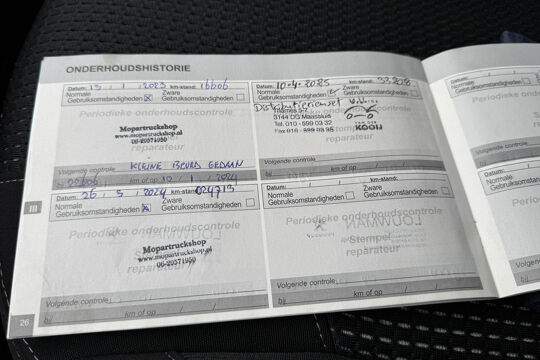 ONDERHOUDSHISTORIE
Datum: 15 / / 2023 km-stand: 16606
Normale Gebruiksomstandigheden ☒ Zware Gebruiksomstandigheden ☐
Periodieke onderhoudscontrole
Mopartruckshop
www.mopartruckshop.nl
06-20571900
reparateur
KLEINE BEURT GEDAAN
Volgende controle
bij km of op 10 / 1 / 2024
Datum: 10-4-2025 km-stand:
Normale Gebruiksomstandigheden Zware Gebruiksomstandigheden ☐
Distributieriemset
Periodieke onderhoudscontrole
Thames 5-7
3144 DG Maassluis
Tel. 010 - 599 03 32
Fax 010 - 599 03 95
KOOIJ
reparateur
Volgende controle
bij km of op / /
Datum: 26 / 3 / 2024 km-stand: 024715
Normale Gebruiksomstandigheden ☒ Zware Gebruiksomstandigheden ☐
Periodieke onderhoudscontrole
Mopartruckshop
www.mopartruckshop.nl
06-20571900
reparateur
Volgende controle
bij km of op / /
Datum: / / km-stand:
Normale Gebruiksomstandigheden ☐ Zware Gebruiksomstandigheden ☐
Periodieke onderhoudscontrole
Stempel
reparateur
Volgende controle
bij km of op / /
III
26